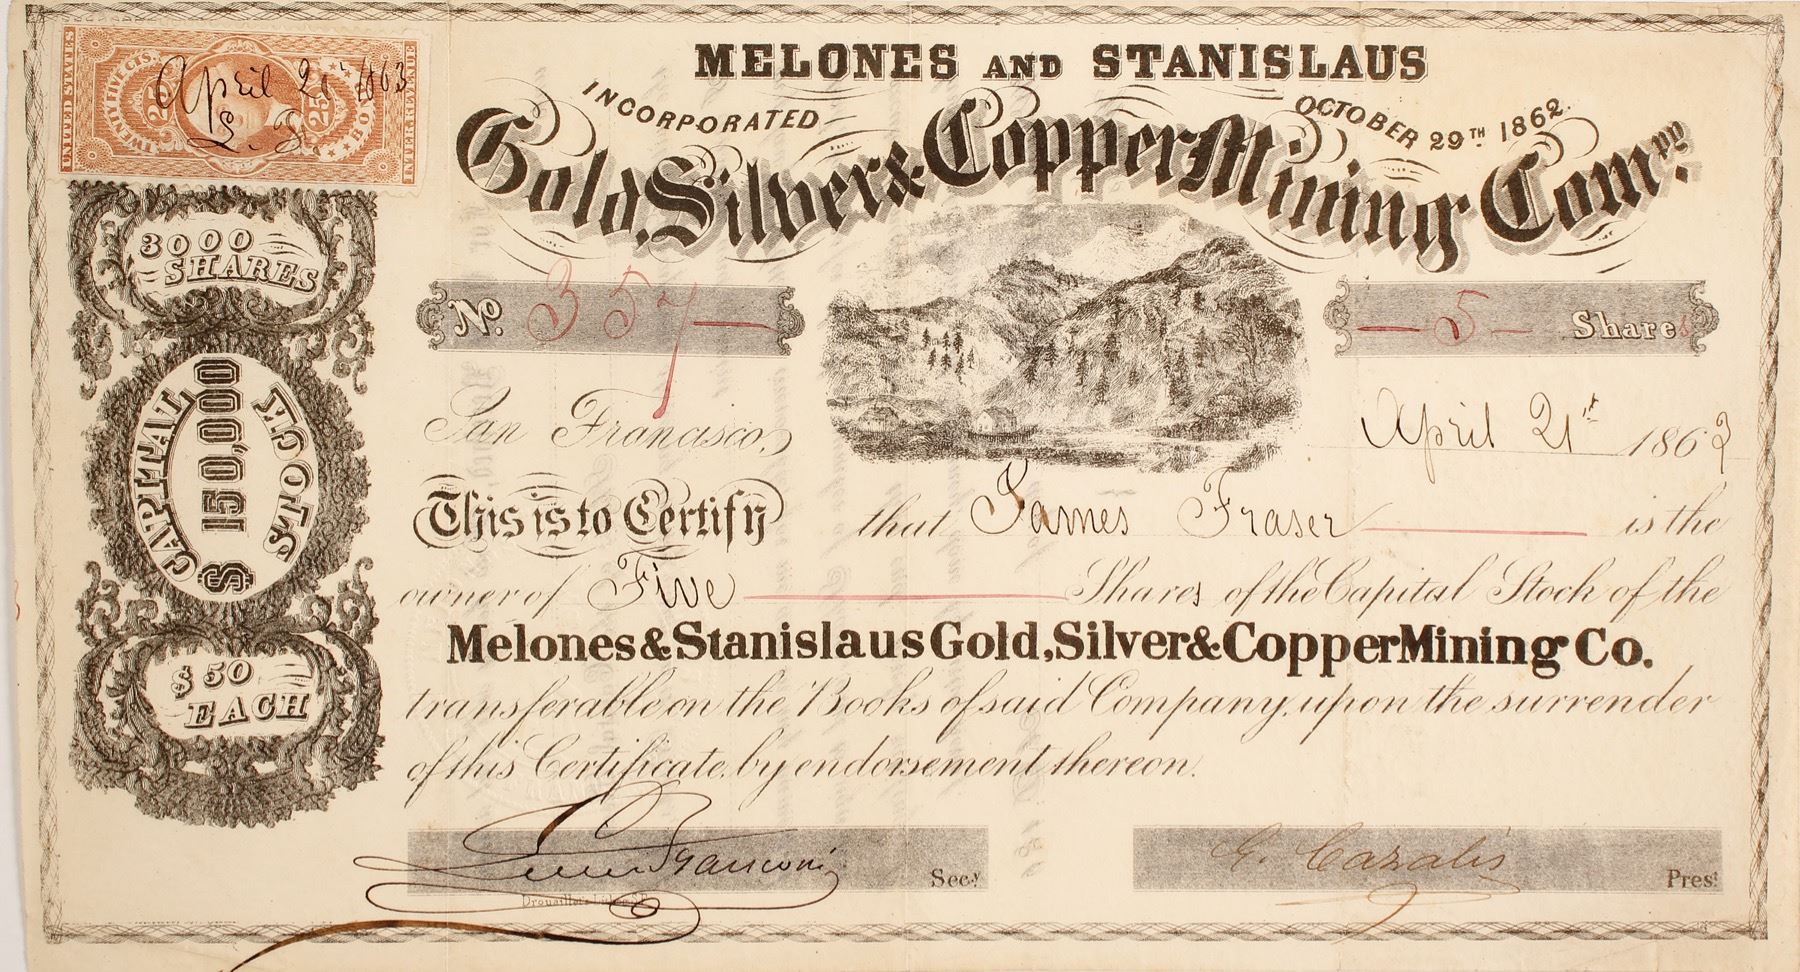 MELONES AND STANISLAUS
INCORPORATED OCTOBER 29TH 1862.
Gold, Silver & Copper Mining Compy.
UNITED STATES
INTER. REVENUE
TWENTY FIVE CTS.
25 25
BOND
April 21st 1863
L. F.
3000
SHARES
CAPITAL STOCK
$150,000
$50
EACH
No. 357
5 Shares
San Francisco, April 21st 1863
This is to Certify that James Fraser is the
owner of Five Shares of the Capital Stock of the
Melones & Stanislaus Gold, Silver & Copper Mining Co.
transferable on the Books of said Company, upon the surrender
of this Certificate, by endorsement thereon.
Franconi Secy.
G. Cazalis Prest